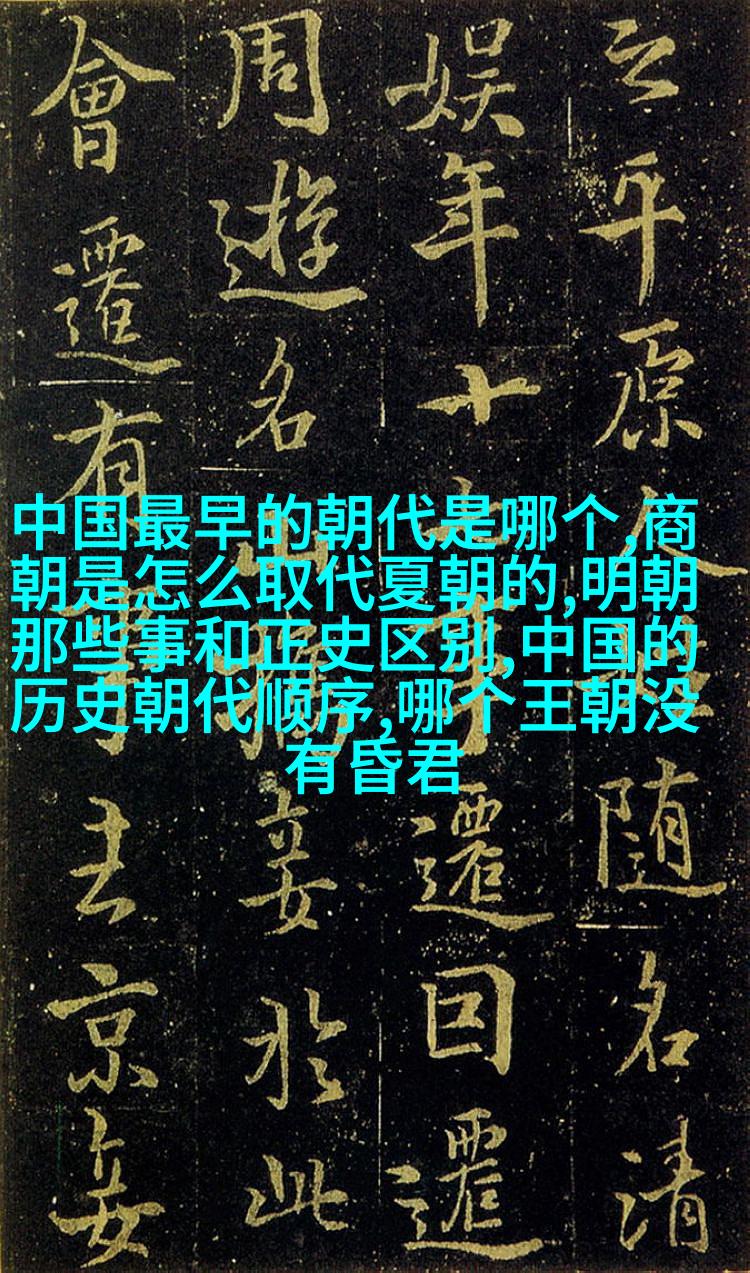 中国最早的朝代是哪个,商
朝是怎么取代夏朝的,明朝
那些事和正史区别,中国的
历史朝代顺序,哪个王朝没
有昏君
之平原人随名清
娱年十遷回遷
周遊名山妾於此
會遷有京妾